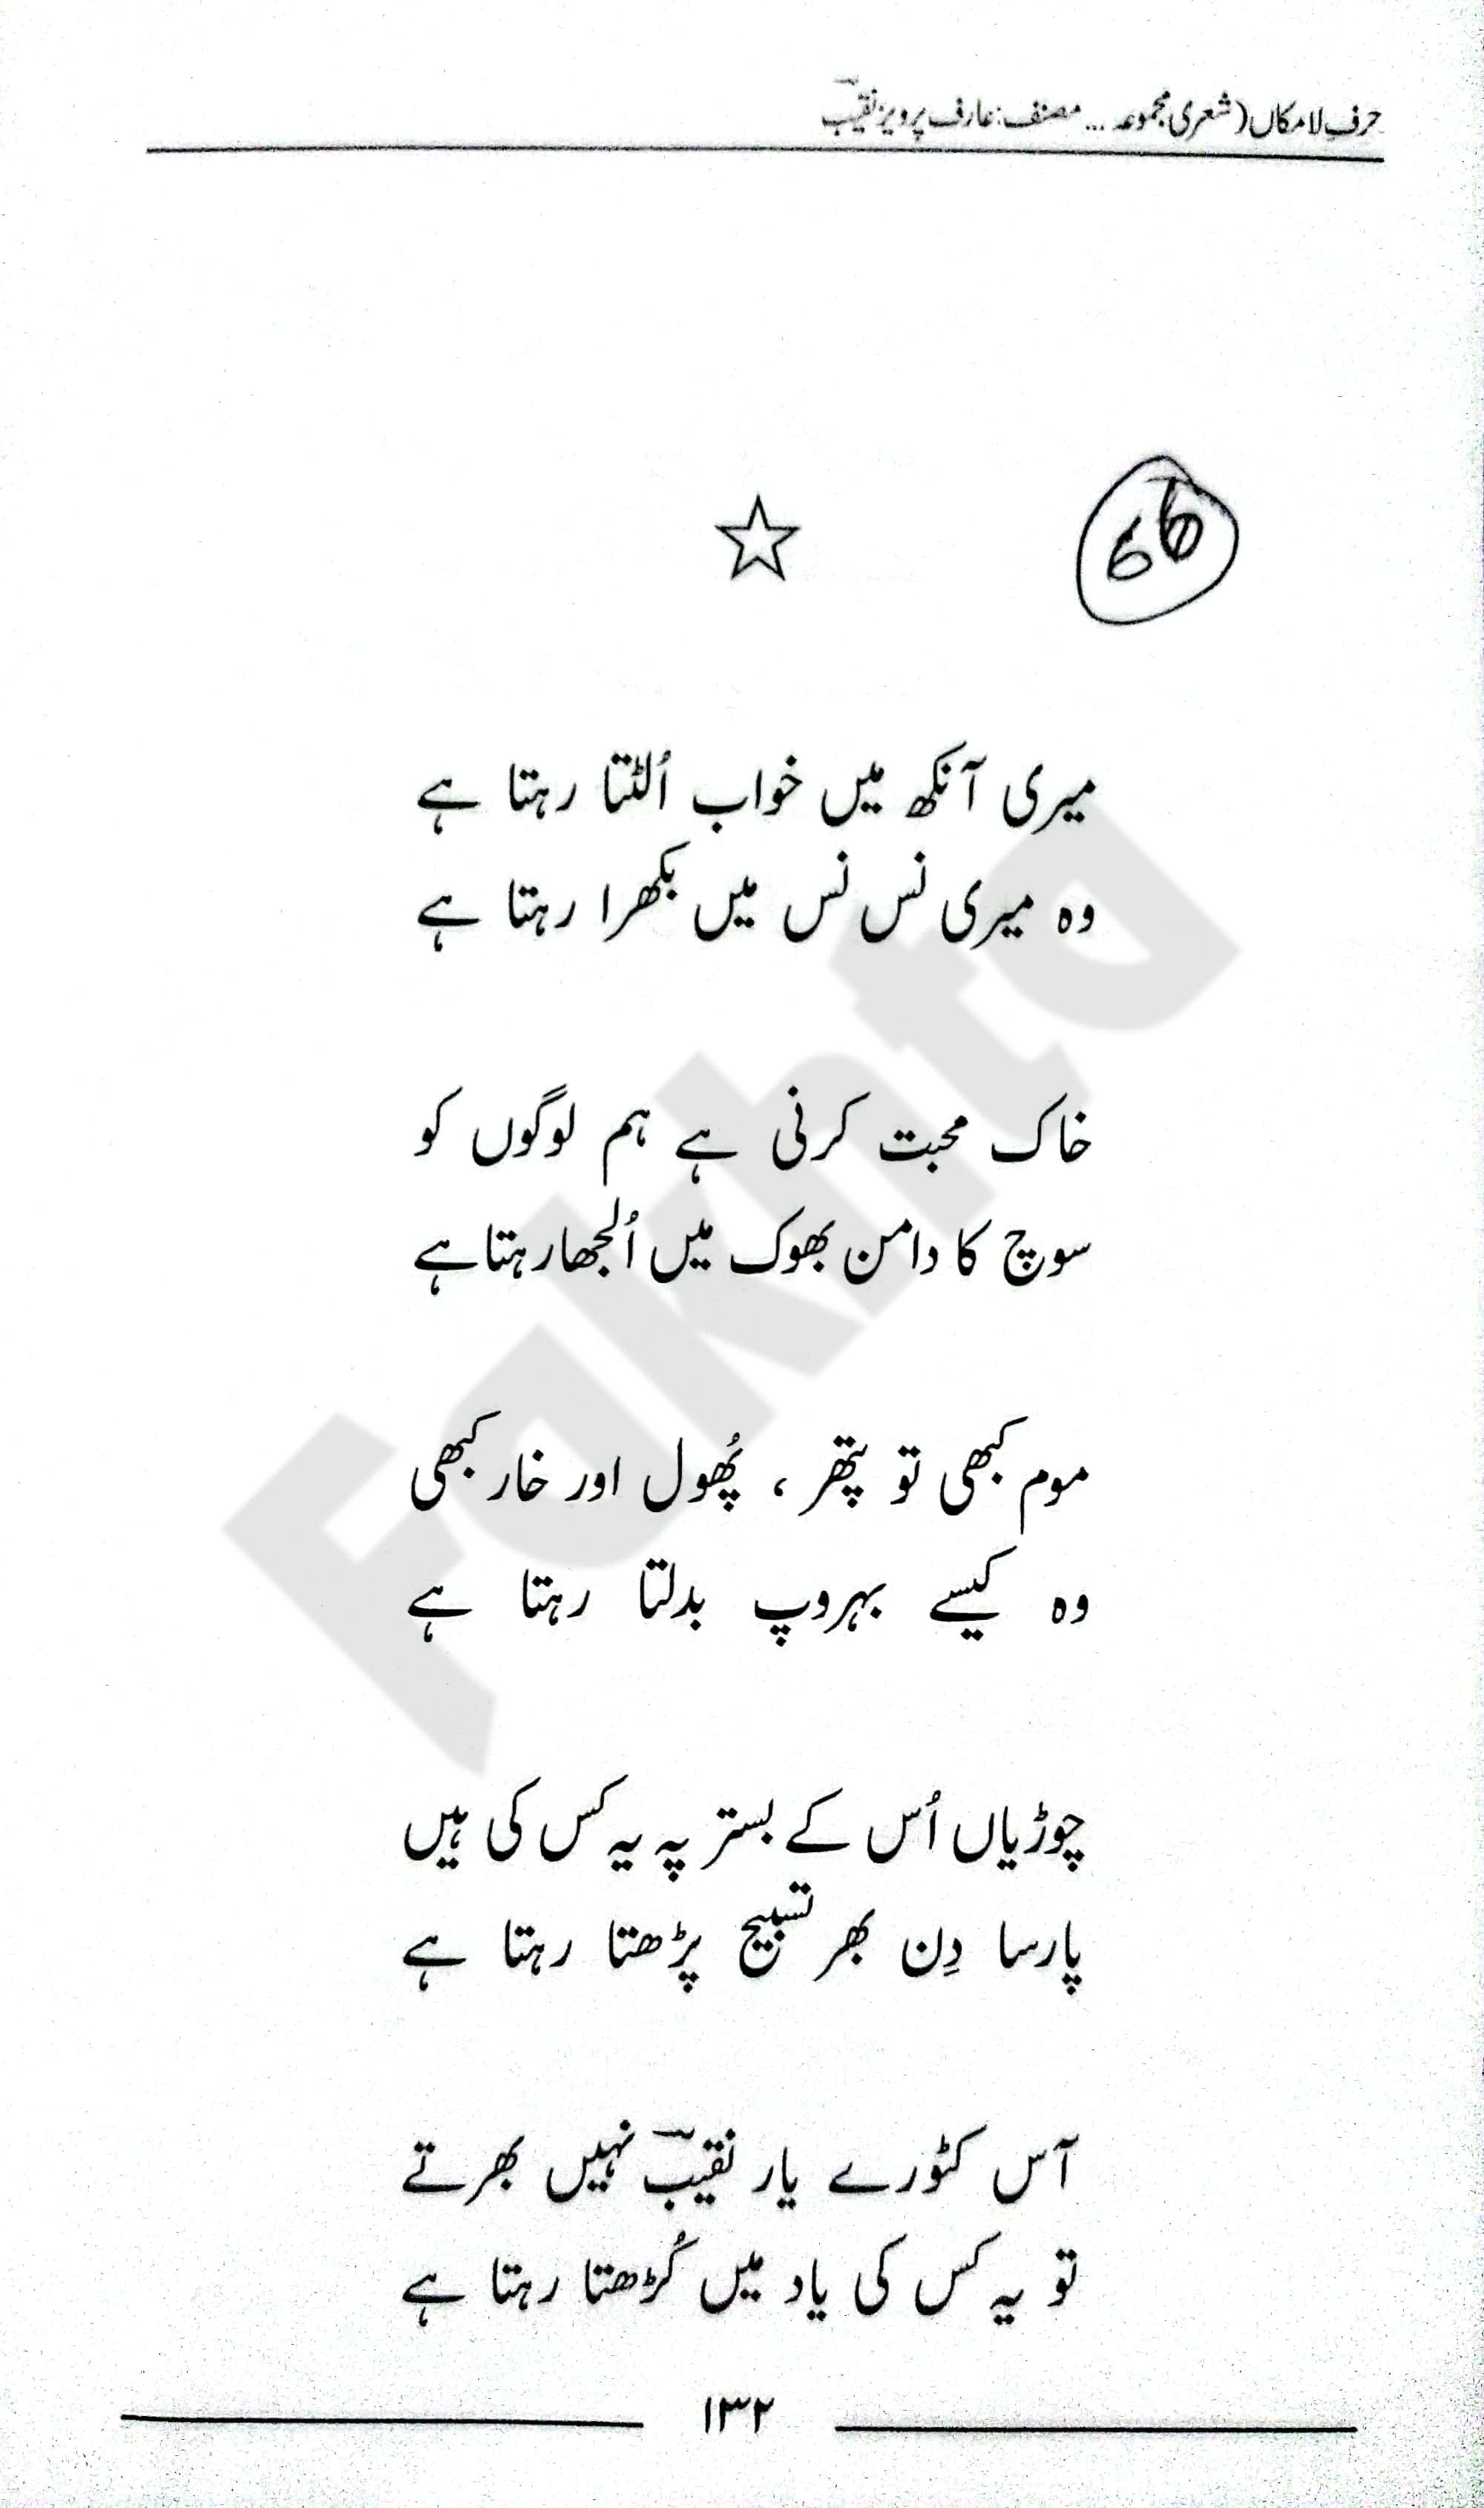 حرفِ لامکاں (شعری مجموعہ ... مصنف: عارف پرویز نقیبؔ
66
میری آنکھ میں خواب اُلٹتا رہتا ہے
وہ میری نس نس میں بکھرا رہتا ہے
خاک محبت کرنی ہے ہم لوگوں کو
سوچ کا دامن بھوک میں اُلجھا رہتا ہے
موم کبھی تو پتھر ، پُھول اور خار کبھی
وہ کیسے بہروپ بدلتا رہتا ہے
چوڑیاں اُس کے بستر پہ یہ کس کی ہیں
پارسا دِن بھر تسبیح پڑھتا رہتا ہے
آس کٹورے یار نقیبؔ نہیں بھرتے
تو یہ کس کی یاد میں کُڑھتا رہتا ہے
۱۳۲
Fakhta